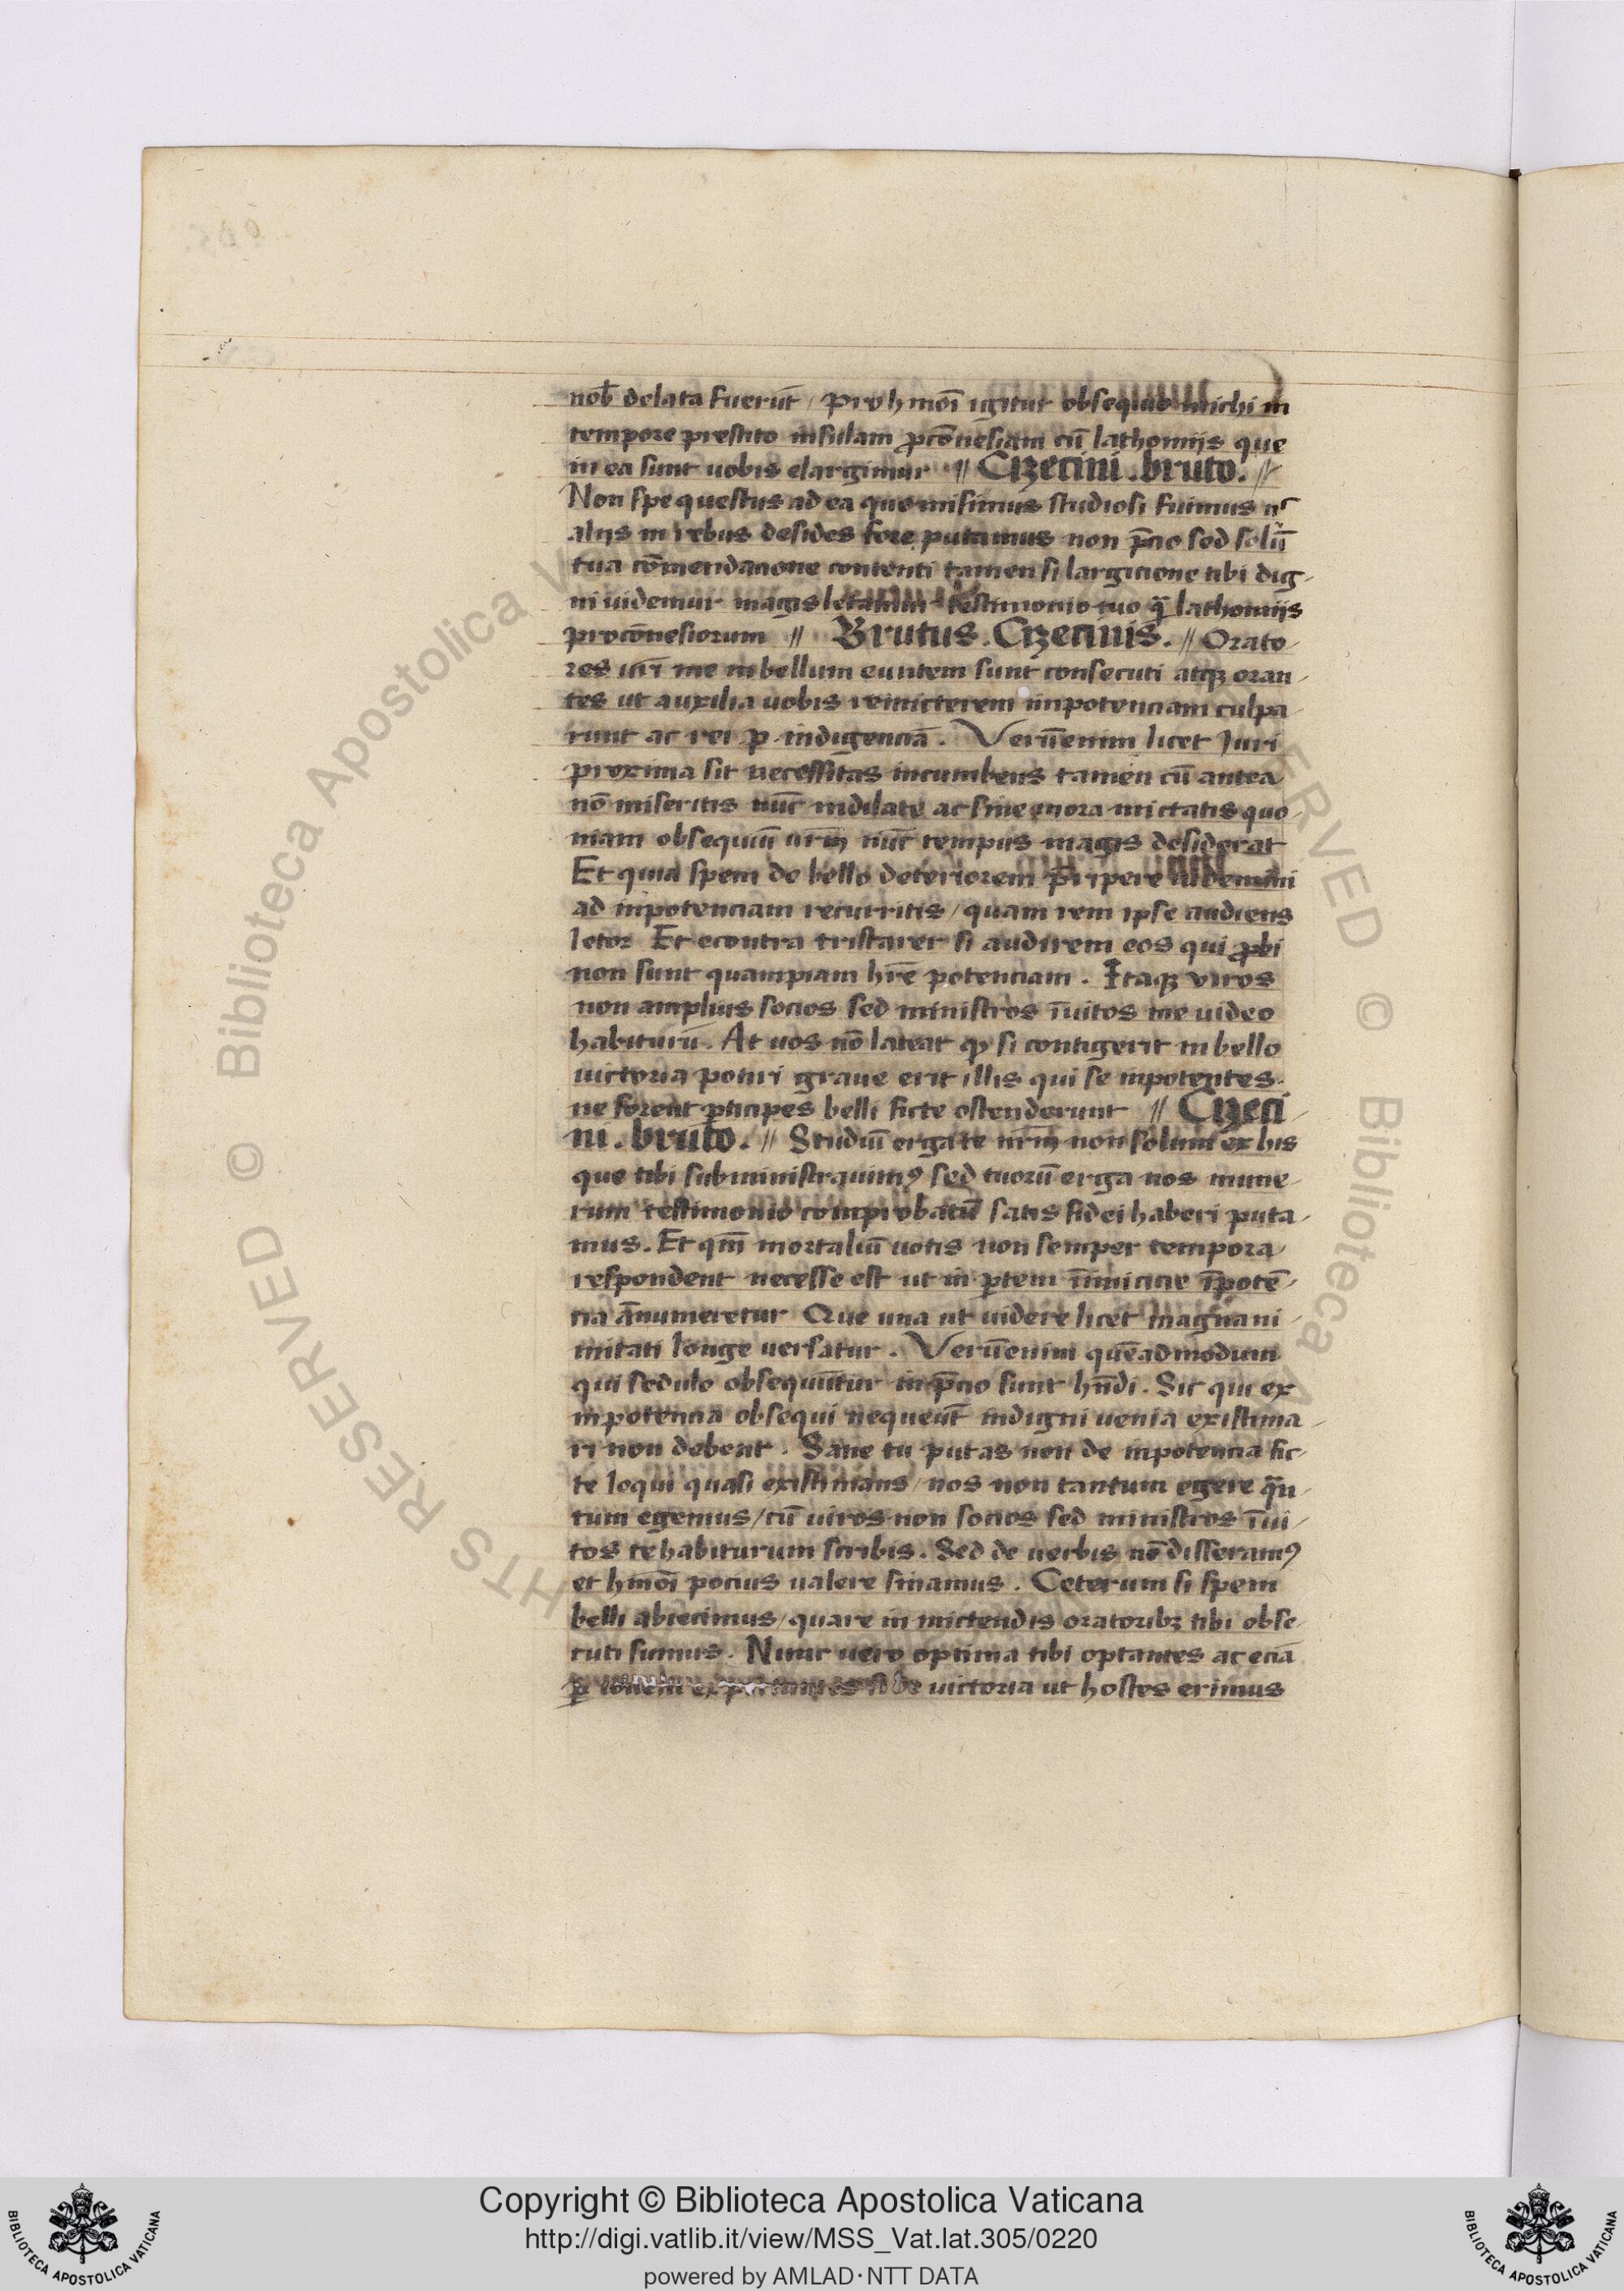 nob̄ delata fuerūt / pro hmōi igitur obsequio michi in
tempore prestito insulam ꝓcōnesiam cū lathomijs que
in ea sunt uobis elargimur ⫽ Cizecini . bruto . ⫽
Non spe questus ad ea que misimus studiosi fuimus nͨ
alijs in rebus desides fore putamus non p̄cio sed solū
tua cōmendacione contenti tamen si largicione tibi dig-
ni uidemur magis letamur testimonio tuo ꝙ̄ lathomijs
procōnesiorum ⫽ Brutus . Cizecinis . ⫽ Orato-
res uri me in bellum euntem sunt consecuti atqꝫ oran-
tes ut auxilia uobis remicterem inpotenciam culpa-
runt ac rei p indigenciā . Verūenim licet Juri
proxima sit necessitas incumbens tamen cū antea
nō miseritis nūc indilate ac sine mora mictatis quo-
niam obsequiū urm̄ nūc tempus magis desiderat
Et quia spem de bello deteriorem p̄ripere uidemini
ad inpotenciam recurritis / quam rem ipse audiens
letor Et econtra tristarer si audirem eos qui ꝓbi
non sunt quampiam hr̄e potenciam . Itaqꝫ viros
non amplius socios sed ministros īuitos me uideo
habiturū . At uos nō lateat ꝙ si contigerit in bello
uictoria potiri graue erit illis qui se inpotentes
ne forent ꝑticipes belli ficte ostenderunt ⫽ Cizeci-
ni . bruto . ⫽ Studiū erga te nrm̄ non solum ex his
que tibi subministrauimꝰ sed tuorū erga nos mune-
rum testimonio comprobatū satis fidei haberi puta-
mus . Et qm̄ mortaliū uotis non semper tempora
respondent necesse est ut in ꝑtem īimicicie īpotē-
cia ānumeretur Que una ut uidere licet magnani-
mitati longe uersatur . Verūenim quēadmodum
qui sedulo obsequūtur in p̄cio sunt hn̄di . Sic qui ex
inpotencia obsequi nequeūt indigni uenia existima-
ri non debent . Sane tu putas non de inpotencia fic-
te loqui quasi existimans / nos non tantum egere ꝙ̄n-
tum egemus / cū uiros non socios sed ministros īui-
tos te habiturum scribis . Sed de uerbis nō disseramꝰ
et hmōi pocius ualere sinamus . Ceterum si spem
belli abiecimus / quare in mictendis oratoribꝫ tibi obse-
cuti sumus . Nunc uero optima tibi optantes ac eciā
ꝑ uictoria ut hostes erimus
Copyright © Biblioteca Apostolica Vaticana
http://digi.vatlib.it/view/MSS_Vat.lat.305/0220
powered by AMLAD·NTT DATA
BIBLIOTECA APOSTOLICA VATICANA
BIBLIOTECA APOSTOLICA VATICANA